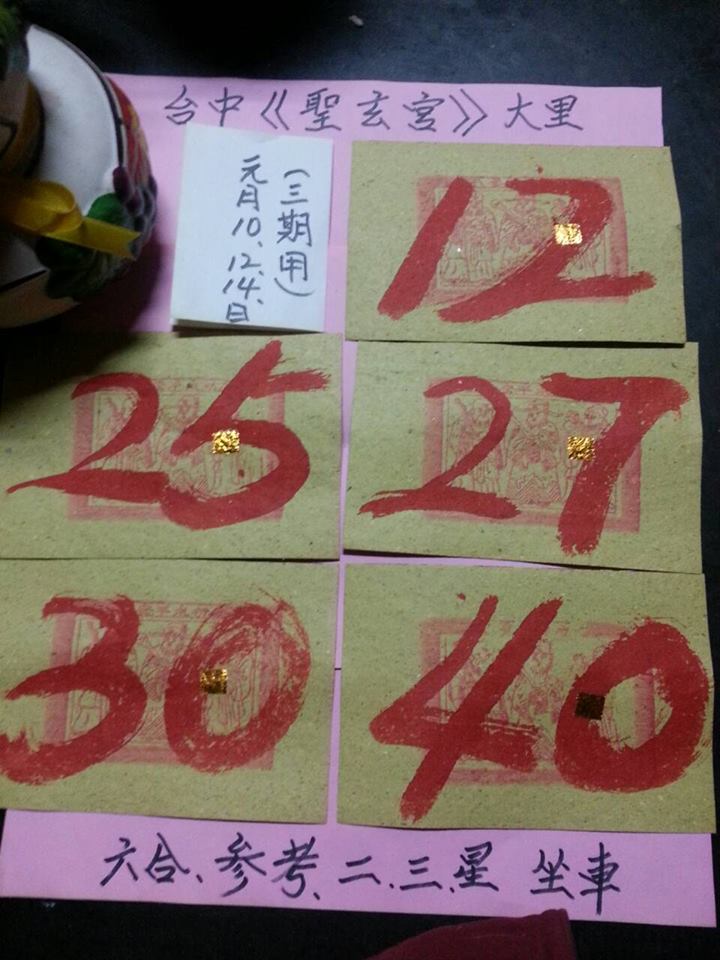 台中《聖玄宮》大里
(三期用)
元月10、12、14、日
12
25
27
30
40
六合、参考、二、三、星 坐車